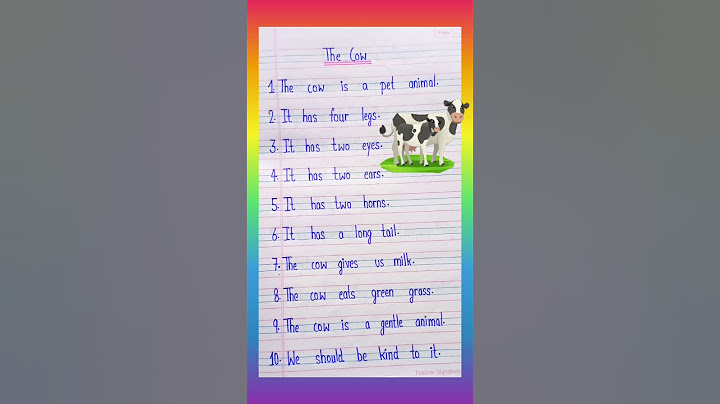 The Cow
1. The cow is a pet animal.
2. It has four legs.
3. It has two eyes.
4. It has two ears.
5. It has two horns.
6. It has a long tail.
7. The cow gives us milk.
8. The cow eats green grass.
9. The cow is a gentle animal.
10. We should be kind to it.
Teacher Signature